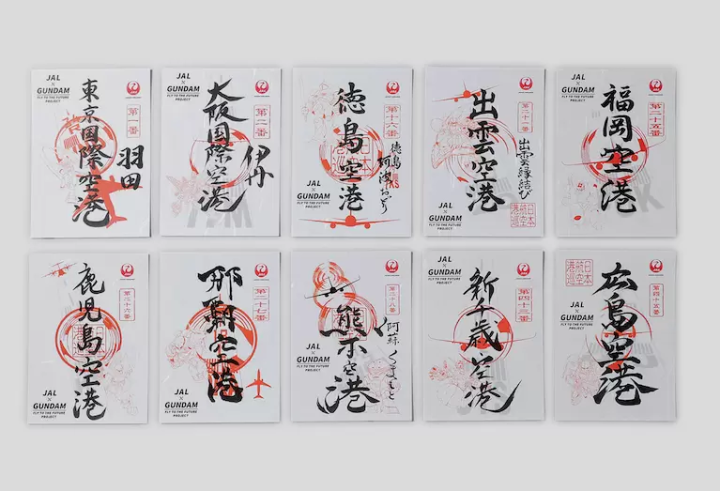 JAL
×
GUNDAM
FLY TO THE FUTURE
PROJECT
第一番
東京国際空港
羽田
JAL
×
GUNDAM
FLY TO THE FUTURE
PROJECT
第二番
大阪国際空港
伊丹
徳島空港
徳島
阿波おどり
JAL
×
GUNDAM
FLY TO THE FUTURE
PROJECT
第二十一番
出雲空港
出雲縁結び
JAL
×
GUNDAM
FLY TO THE FUTURE
PROJECT
JAL
×
GUNDAM
FLY TO THE FUTURE
PROJECT
第二十五番
福岡空港
鹿児島空港
JAL
×
GUNDAM
FLY TO THE FUTURE
PROJECT
那覇空港
JAL
×
GUNDAM
FLY TO THE FUTURE
PROJECT
熊本空港
阿蘇
くまもと
JAL
×
GUNDAM
FLY TO THE FUTURE
PROJECT
JAL
×
GUNDAM
FLY TO THE FUTURE
PROJECT
第四十三番
新千歳空港
第四十五番
広島空港
JAL
×
GUNDAM
FLY TO THE FUTURE
PROJECT